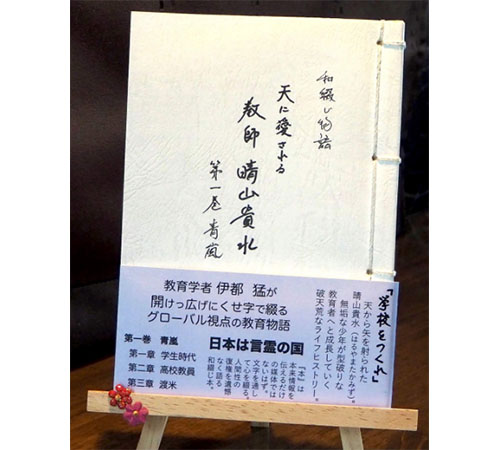 和綴じ物語
天に愛される
教師 晴山貴水
第一巻 青嵐
「学校をつくれ」
天から矢を射られた
晴山貴水（はるやまたかみず）。
無垢な少年が型破りな
教育者へと成長していく
破天荒なライフヒストリー。
教育学者 伊都 猛が
開けっ広げにくせ字で綴る
グローバル視点の教育物語
日本は言霊の国
『本』は
本来情報を
伝えるだけ
の媒体では
ないはず。
文字を通し
て心を綴る。
人間性の
復権を遺憾
なく語る
和綴じ本。
第一巻 青嵐
第一章 学生時代
第二章 高校教員
第三章 渡米